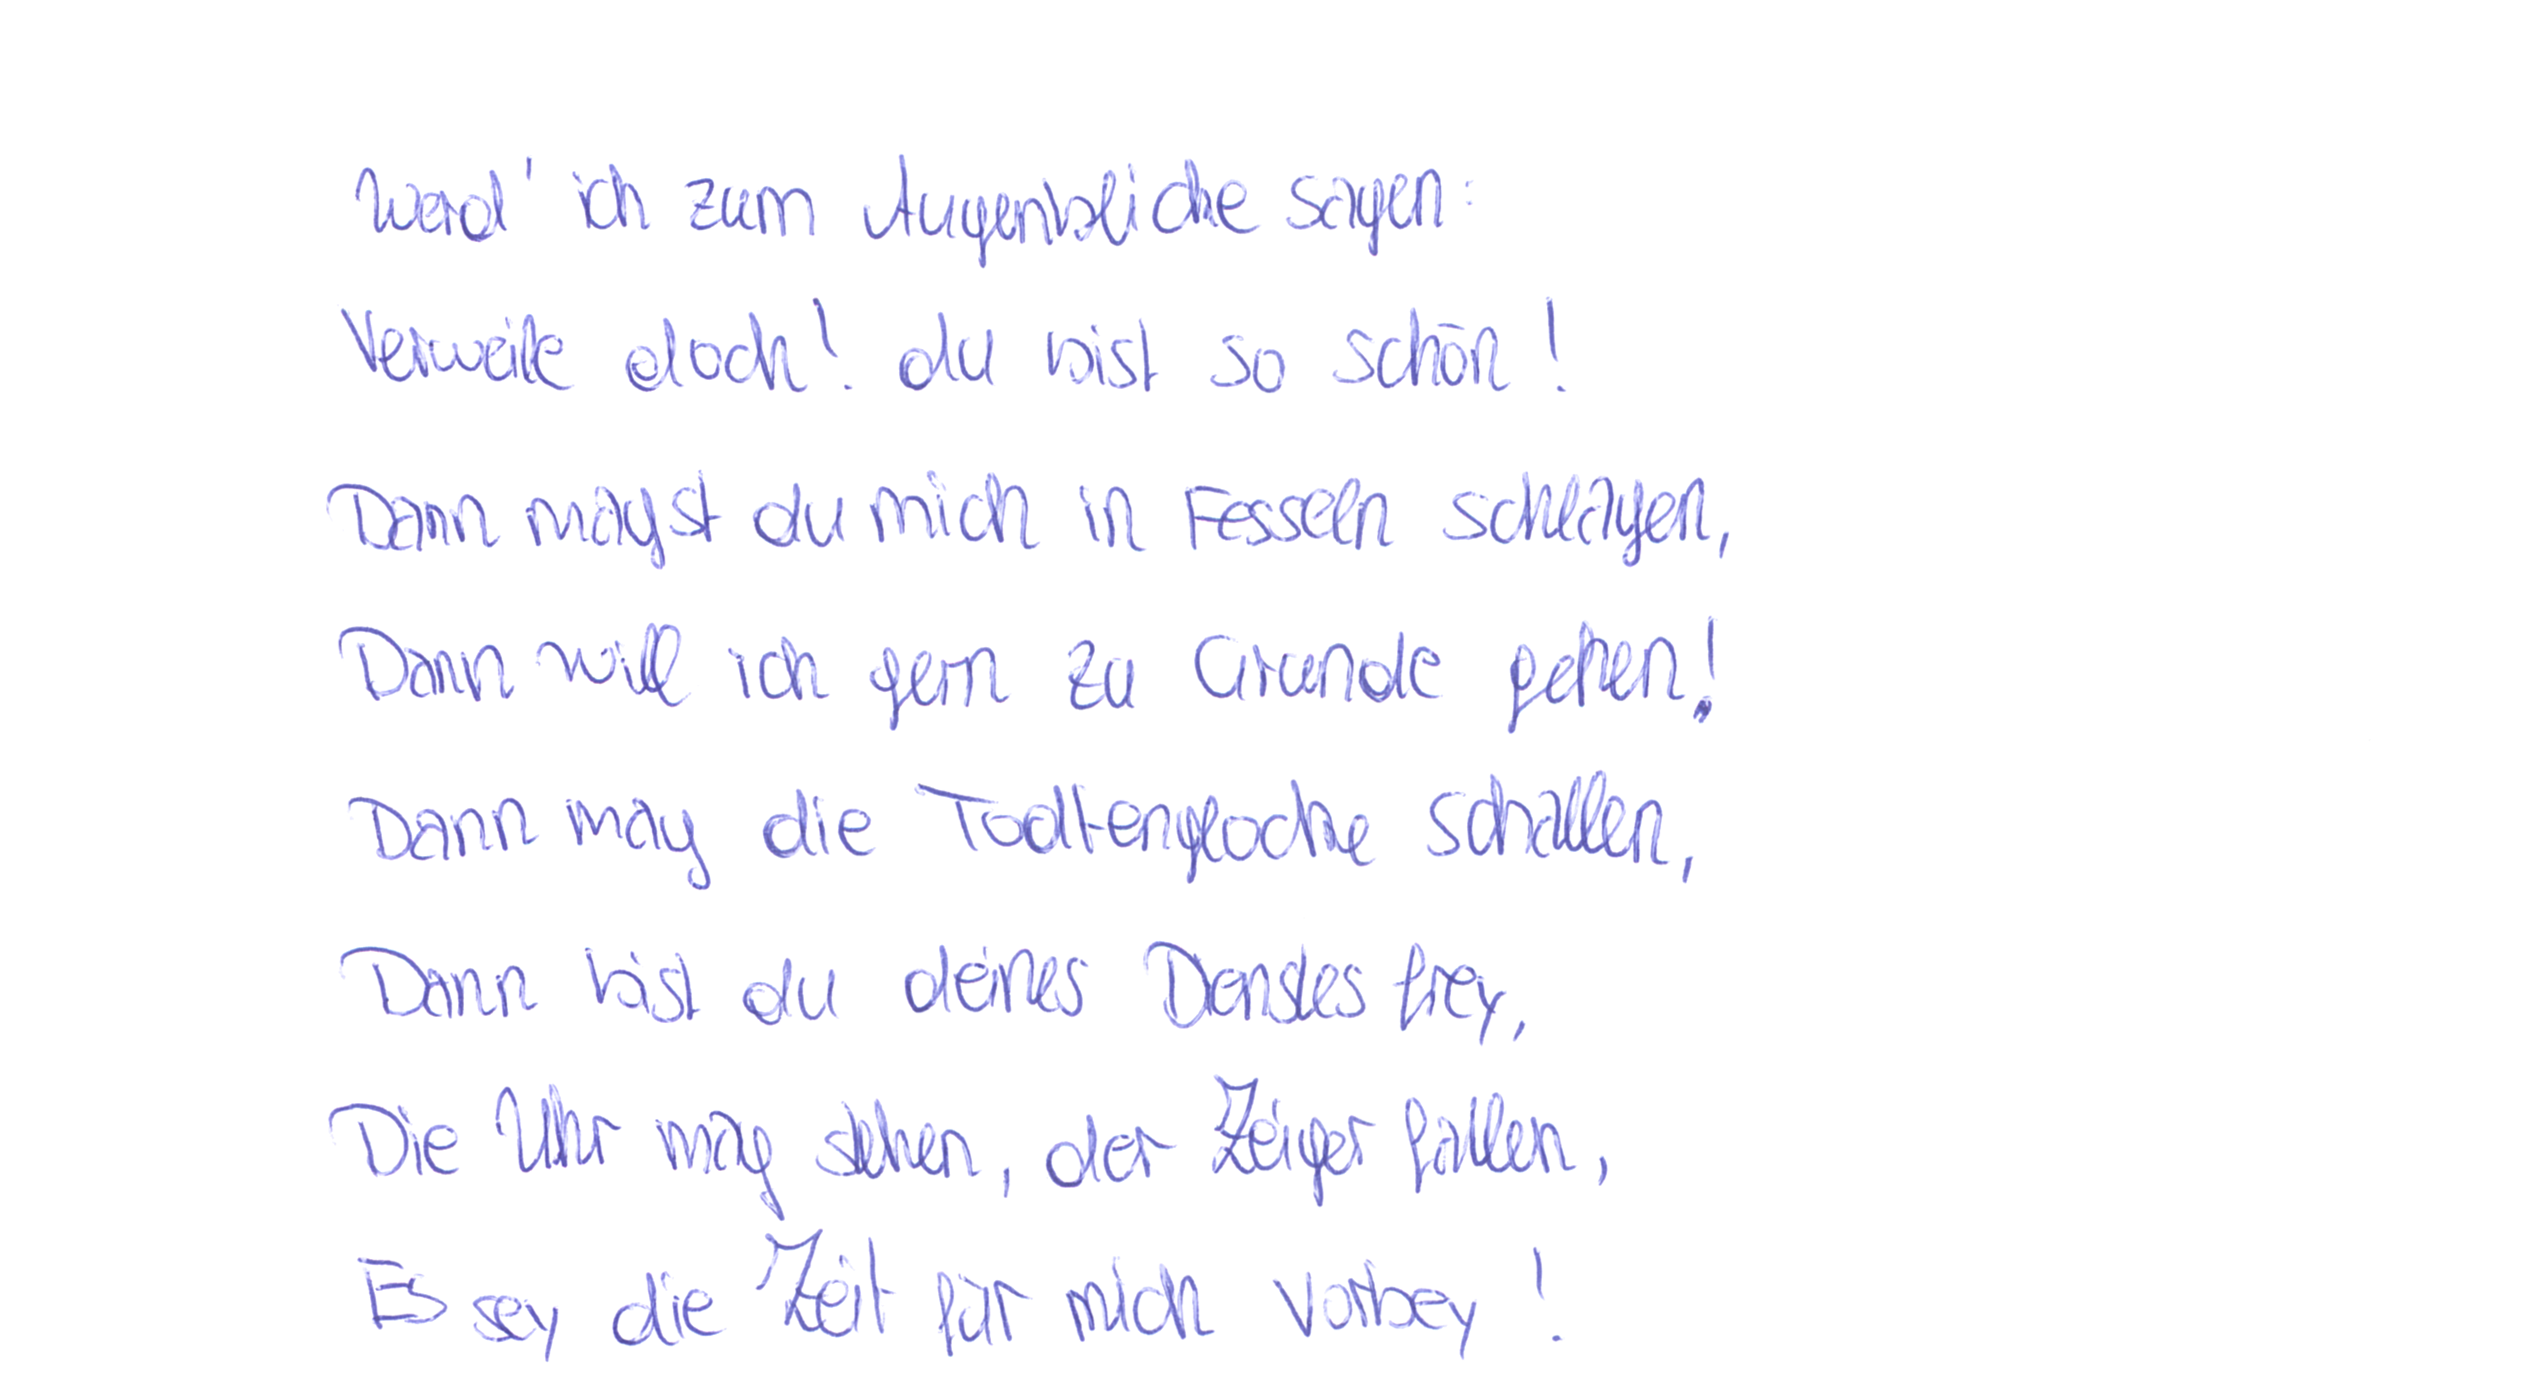 Werd' ich zum Augenblicke sagen:
Verweile doch! du bist so schön!
Dann magst du mich in Fesseln schlagen,
Dann will ich gern zu Grunde gehen!
Dann mag die Todtenglocke schallen,
Dann bist du deines Dienstes frey,
Die Uhr mag stehen, der Zeiger fallen,
Es sey die Zeit für mich vorbey!